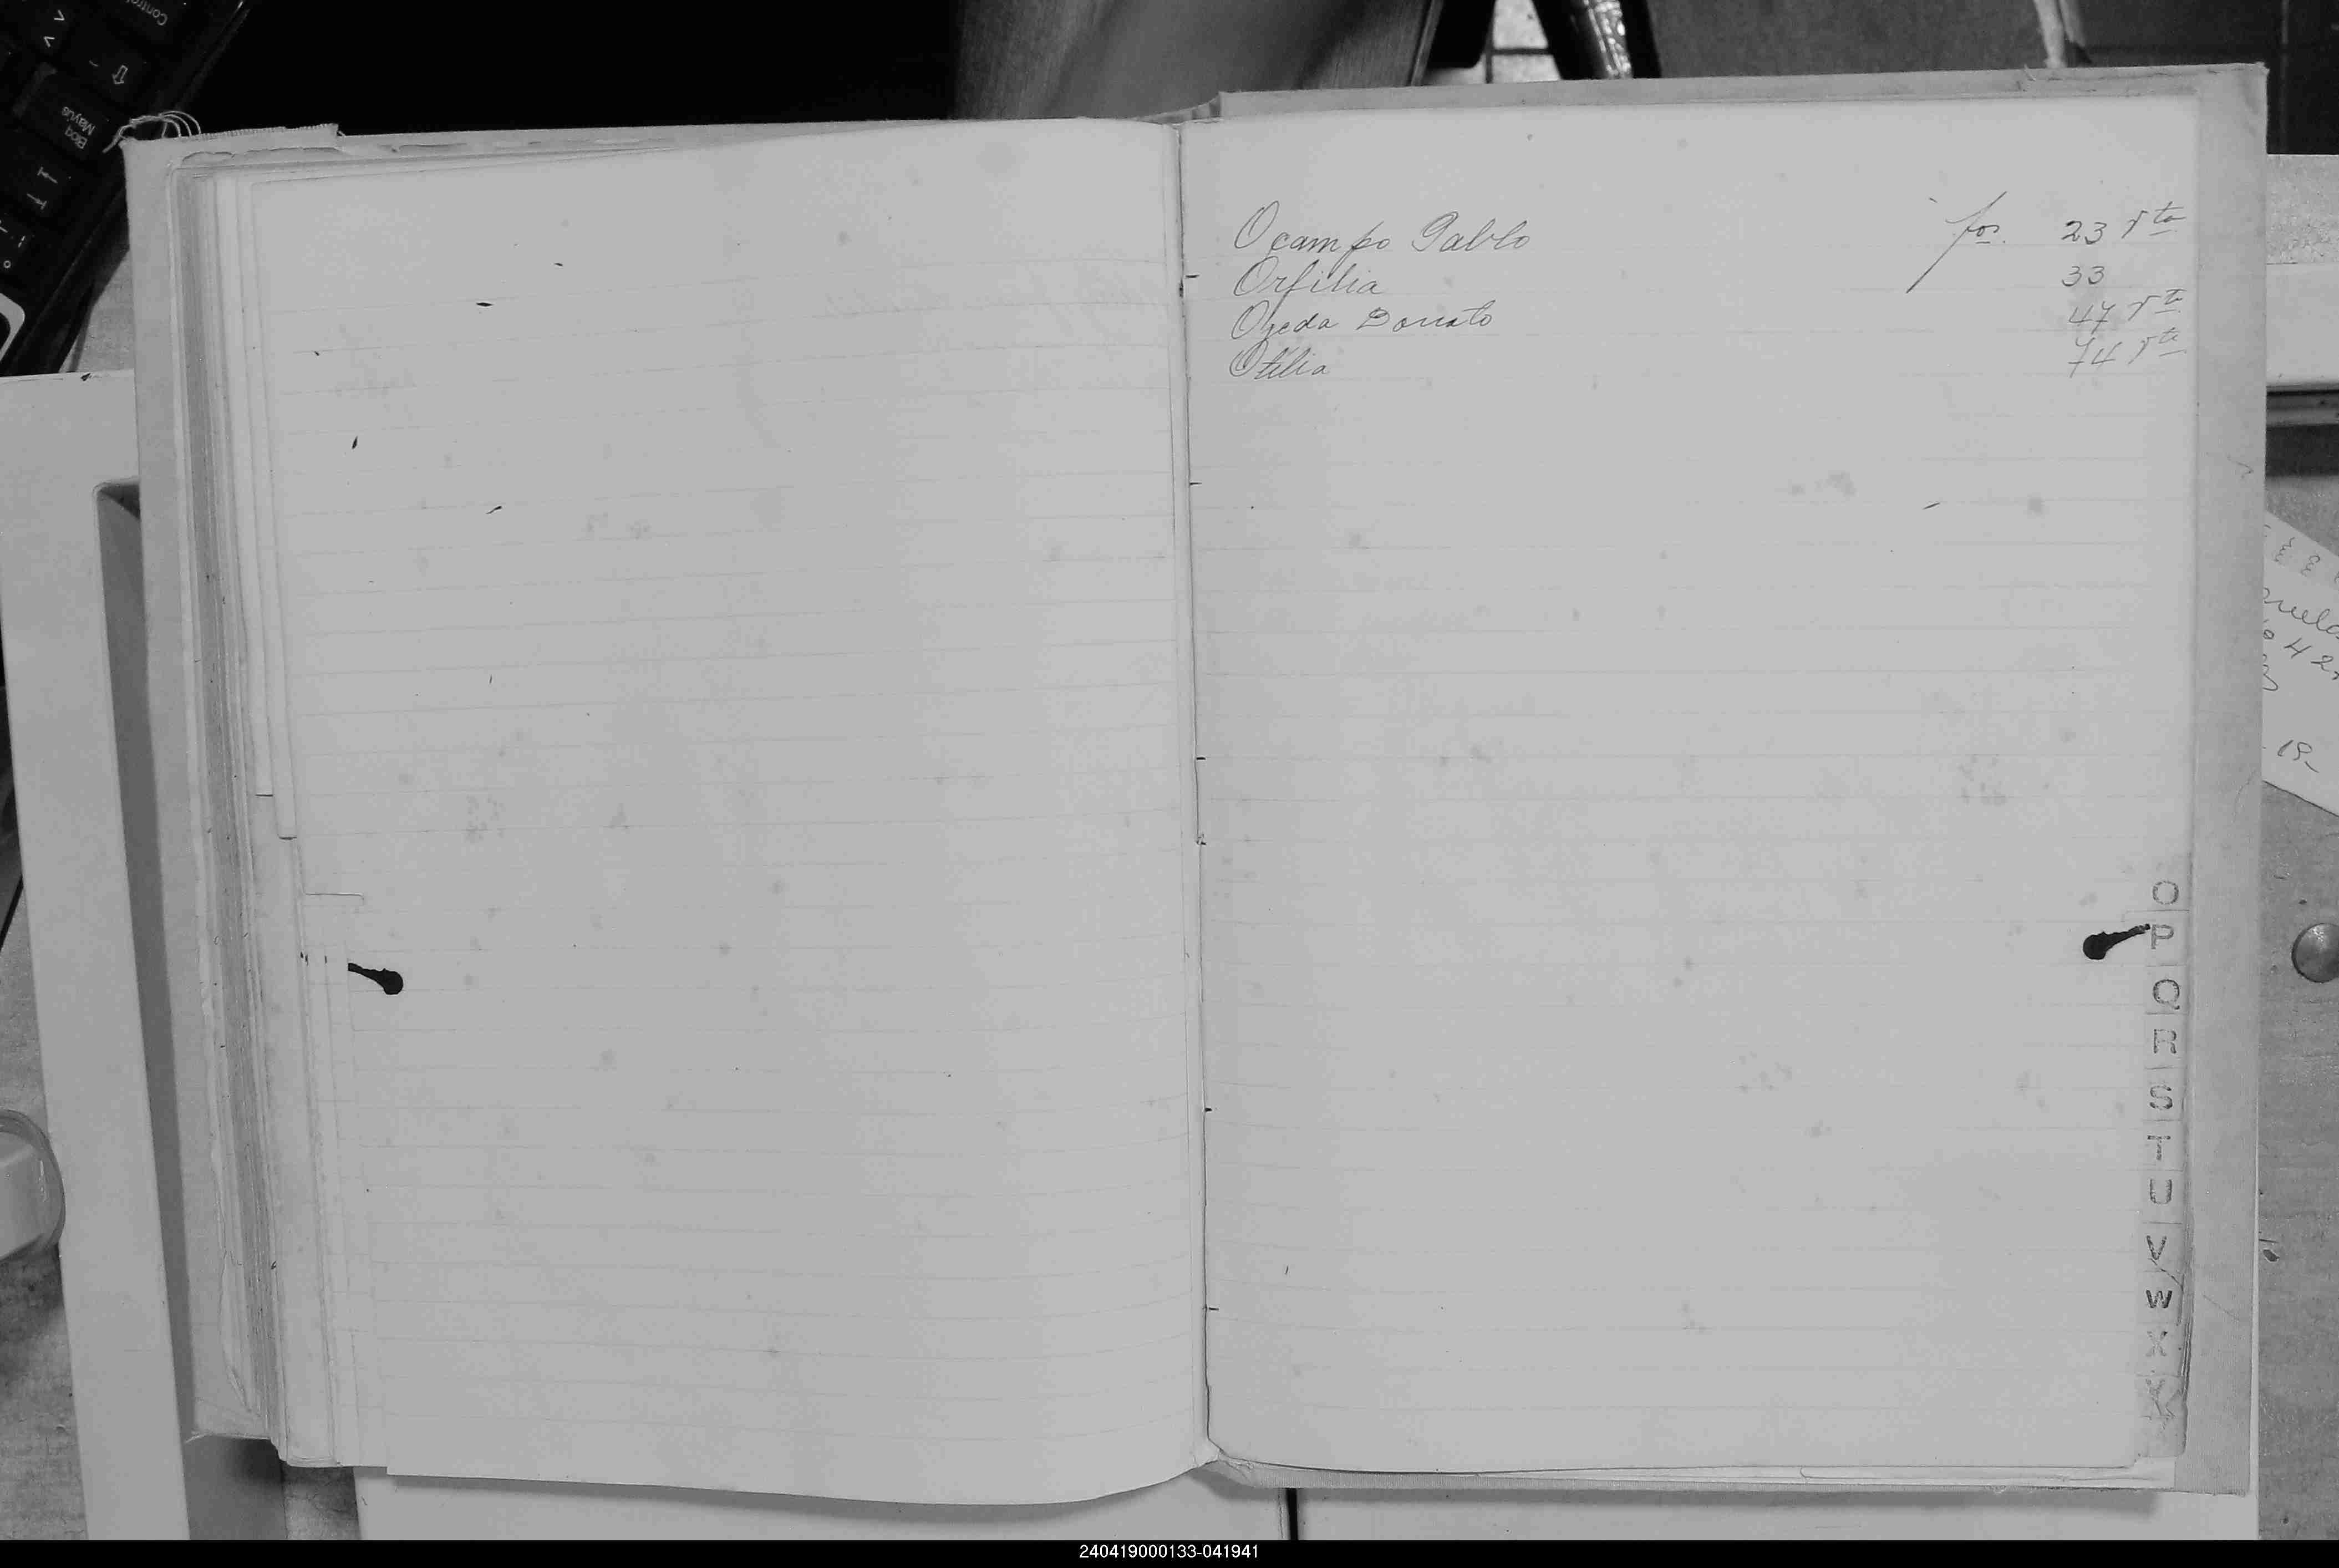 Ocampo Pablo fos. 23 vta
Orfilia 33
Ojeda Donato 47 vta
Otilia 74 vta
O
P
Q
R
S
T
U
V
W
X
Y
19
Bloq
Mayús
240419000133-041941